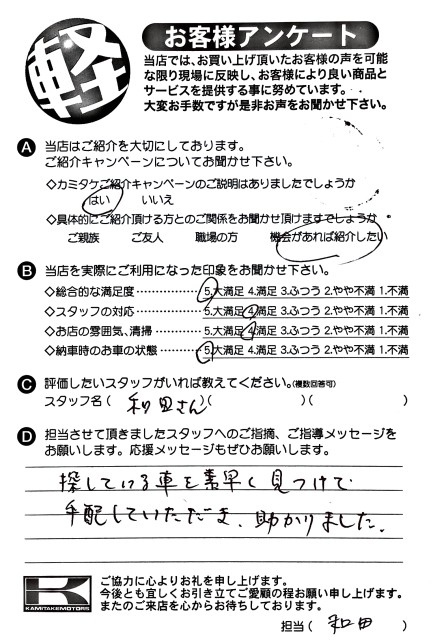 軽
お客様アンケート
当店では、お買い上げ頂いたお客様の声を可能
な限り現場に反映し、お客様により良い商品と
サービスを提供する事に努めています。
大変お手数ですが是非お声をお聞かせ下さい。
A 当店はご紹介を大切にしております。
ご紹介キャンペーンについてお聞かせ下さい。
◇カミタケご紹介キャンペーンのご説明はありましたでしょうか
はい いいえ
◇具体的にご紹介頂ける方とのご関係をお聞かせ頂けますでしょうか
ご親族 ご友人 職場の方 機会があれば紹介したい
B 当店を実際にご利用になった印象をお聞かせ下さい。
◇総合的な満足度……………5.大満足 4.満足 3.ふつう 2.やや不満 1.不満
◇スタッフの対応……………5.大満足 4.満足 3.ふつう 2.やや不満 1.不満
◇お店の雰囲気、清掃………5.大満足 4.満足 3.ふつう 2.やや不満 1.不満
◇納車時のお車の状態………5.大満足 4.満足 3.ふつう 2.やや不満 1.不満
C 評価したいスタッフがいれば教えてください。(複数回答可)
スタッフ名( 和田さん )( )( )
D 担当させて頂きましたスタッフへのご指摘、ご指導メッセージを
お願いします。応援メッセージもぜひお願いします。
探している車を素早く見つけて
手配していただき、助かりました。
K KAMITAKEMOTORS
ご協力に心よりお礼を申し上げます。
今後とも宜しくお引き立てご愛顧の程お願い申し上げます。
またのご来店を心からお待ちしております。
担当( 和田 )